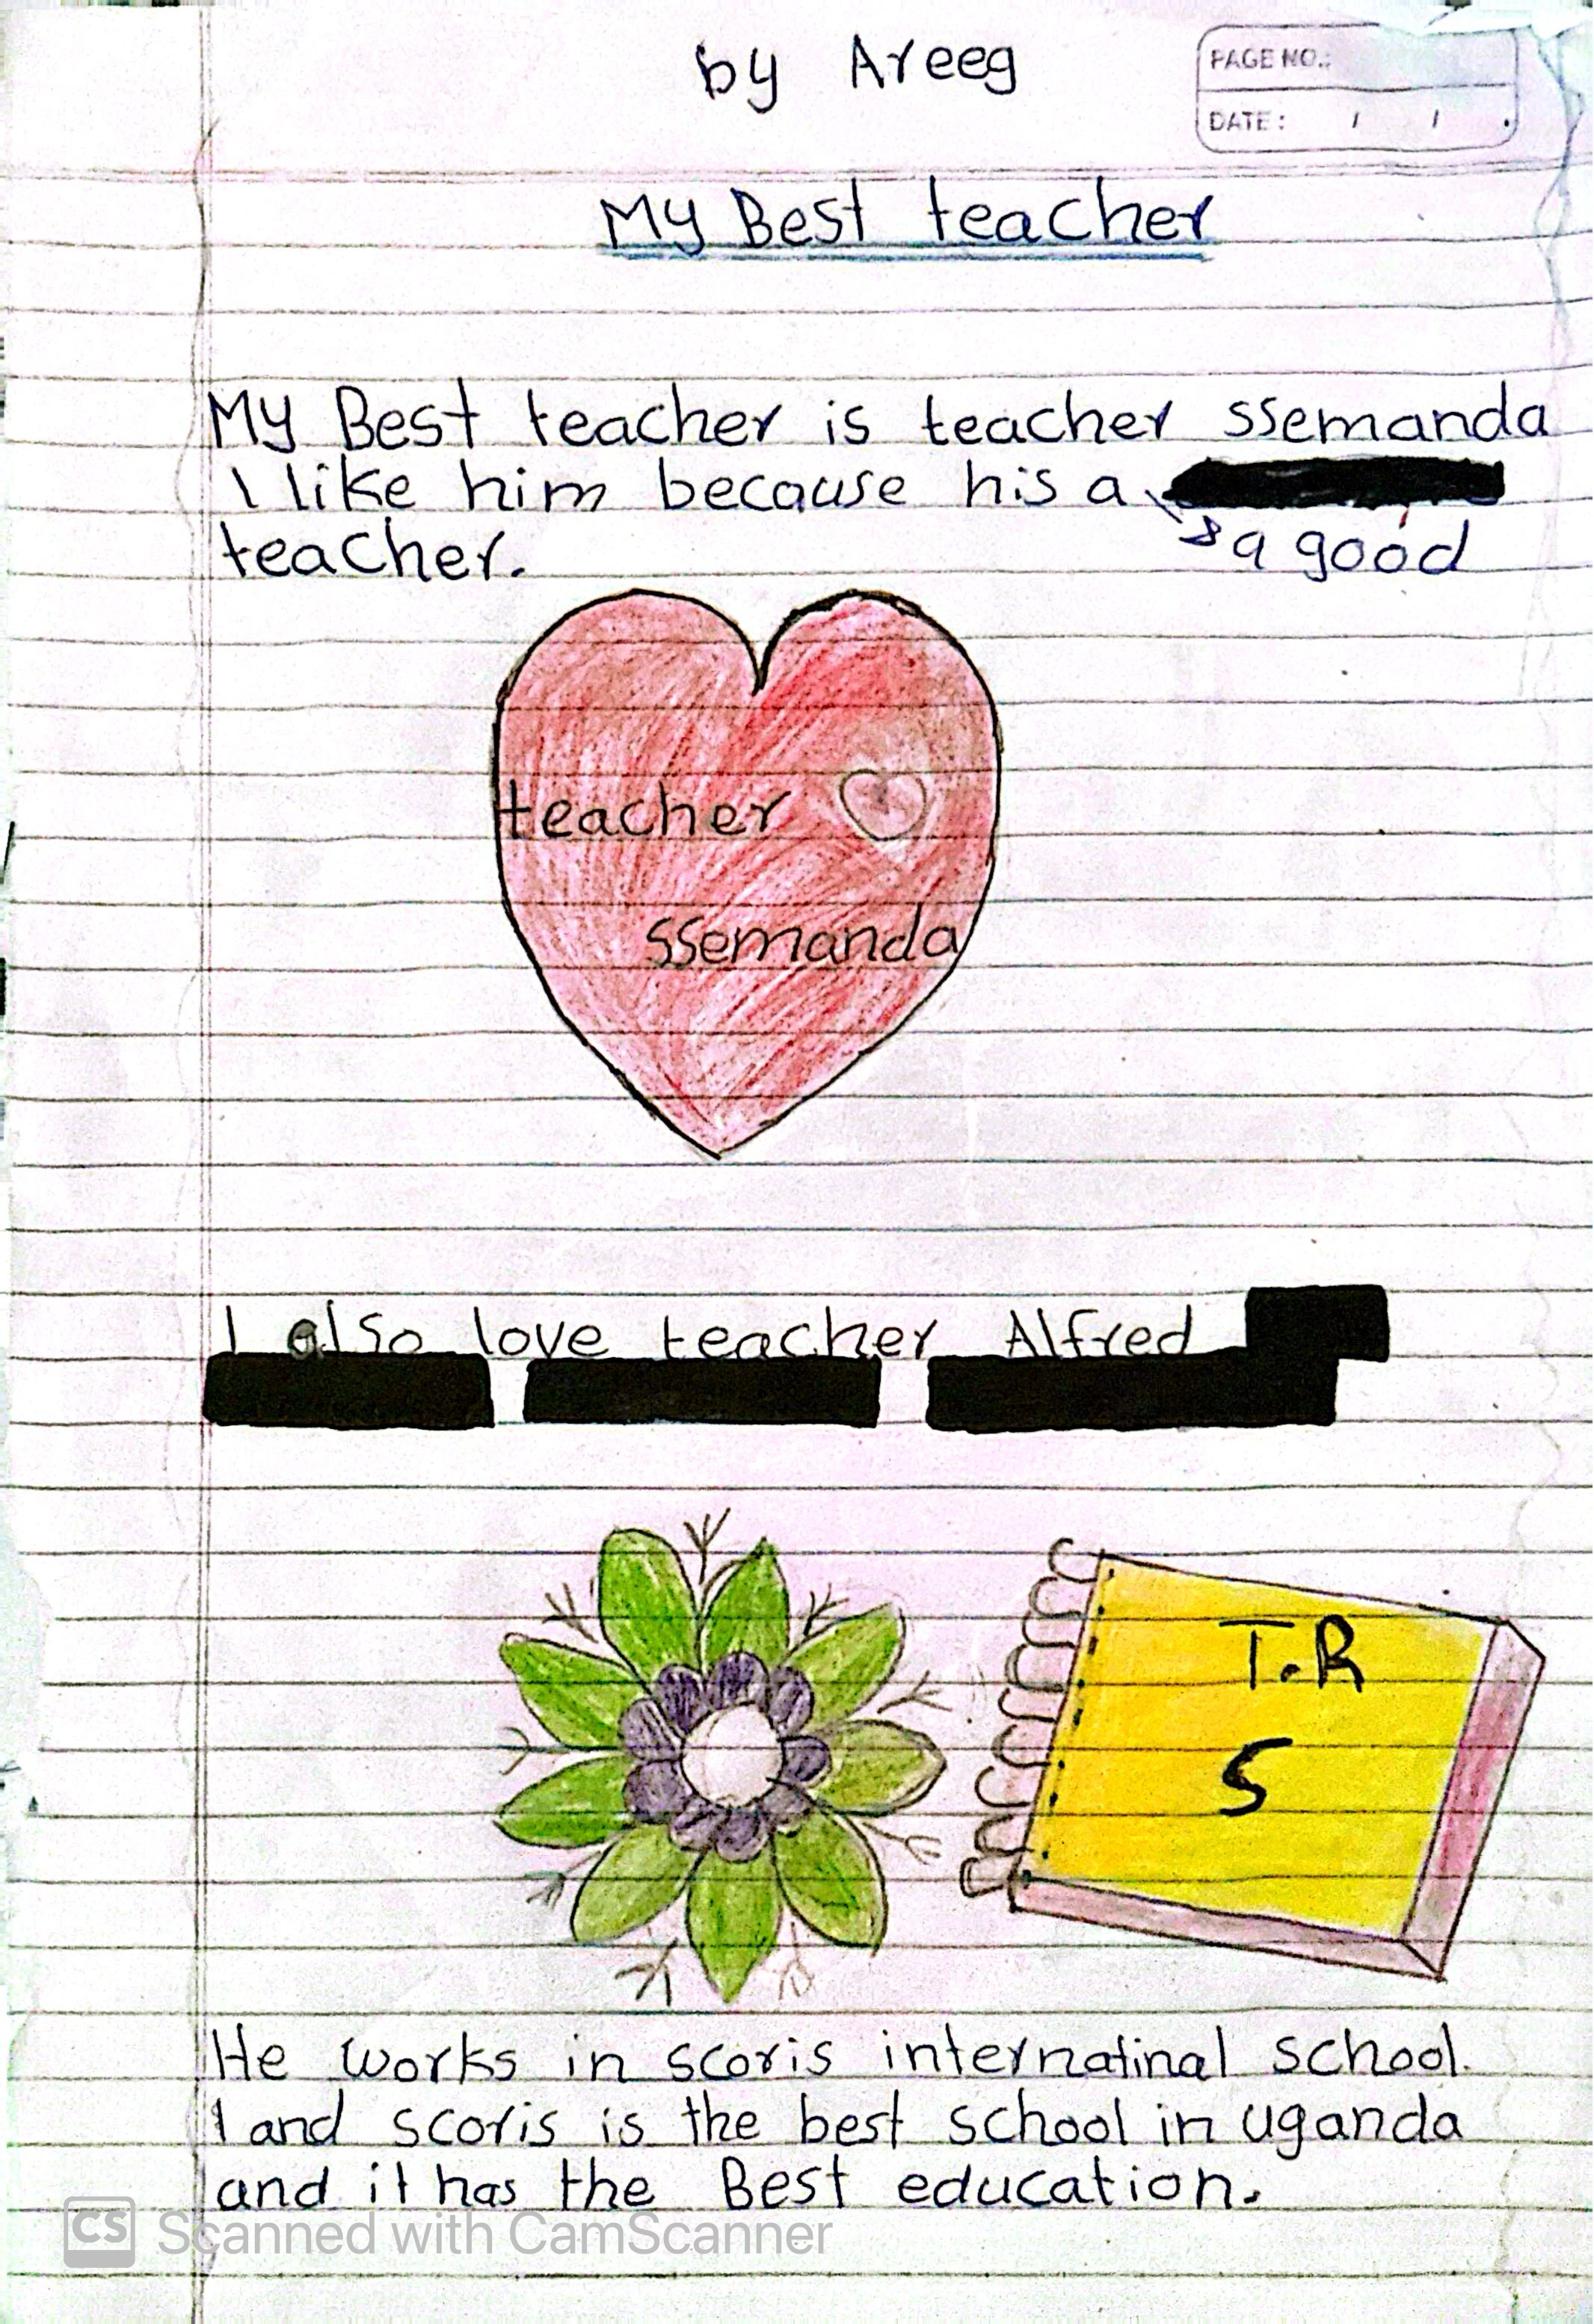 by Areeg
PAGE NO.:
DATE: / /
My Best teacher
My Best teacher is teacher ssemanda
I like him because his a
a good
teacher.
teacher
ssemanda
I also love teacher Alfred
T.R
S
He works in scoris internatinal school.
I and scoris is the best school in uganda
and it has the Best education.
CS Scanned with CamScanner